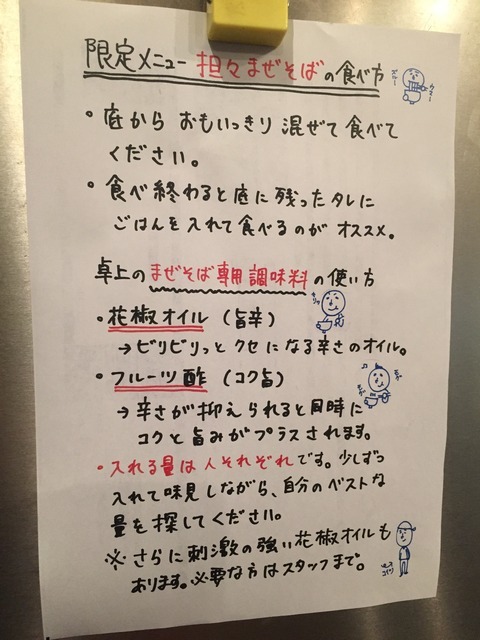 限定メニュー 担々まぜそばの食べ方
・底から おもいっきり 混ぜて 食べて
ください。
・食べ終わると底に残ったタレに
ごはんを入れて食べるのが オススメ。
卓上のまぜそば専用調味料の使い方
・花椒オイル (旨辛)
→ビリビリっと クセになる辛さのオイル。
・フルーツ酢 (コク旨)
→辛さが抑えられると同時に
コクと旨みがプラスされます。
・入れる量は人それぞれです。少しずつ
入れて味見しながら、自分のベストな
量を探してください。
※さらに刺激の強い花椒オイルも
あります。必要な方はスタッフまで。